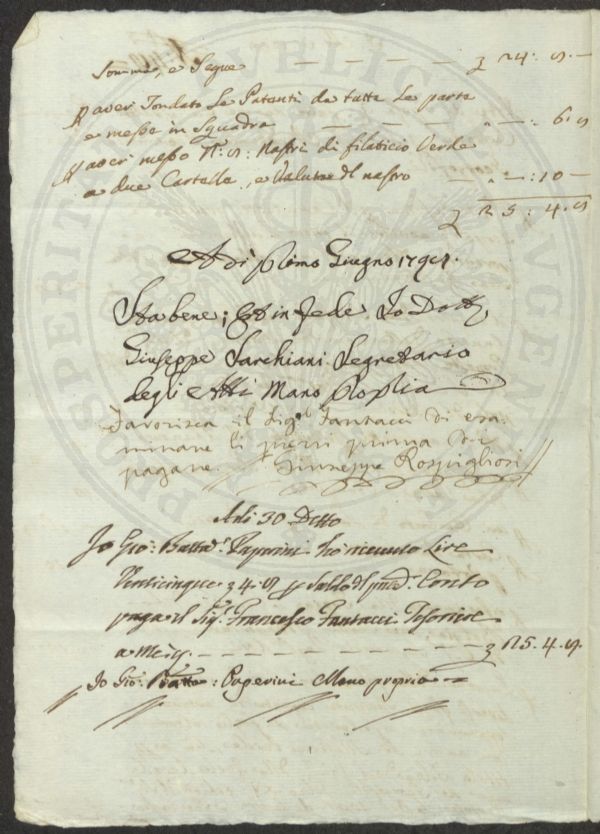 Somma, e Segue — — — — — ʒ 24: 9. —
P averi Tondato Le Patenti da tutte Le parte
e messe in Squadra — — — — — " — : 6: 9
P averi messo N.° 9: Nastri di filaticio Verde
a due Cartelle, e Valuta d'l nastro — " — : 10 —
ʒ 25: 4. 9
A dì Primo Giugno 179
Sta bene; Et in fede Io Dott.
Giuseppe Sarchiani Segretario
degli Atti Mano Propria
Favorisca il Sig.r Fantacci di esa-
minare li prezzi prima di
pagare. Giuseppe Rospigliosi
Adì 30 Detto
Io Gio: Batta. Paperini hò ricevuto Lire
Venticinque ʒ 4. 9 p Saldo d'l pnte. Conto
paga il Sig.r Francesco Fantacci Tesoriere
a — — — — — — — — — — ʒ 25. 4. 9.
Io Gio: Batta: Paperini Mano propria